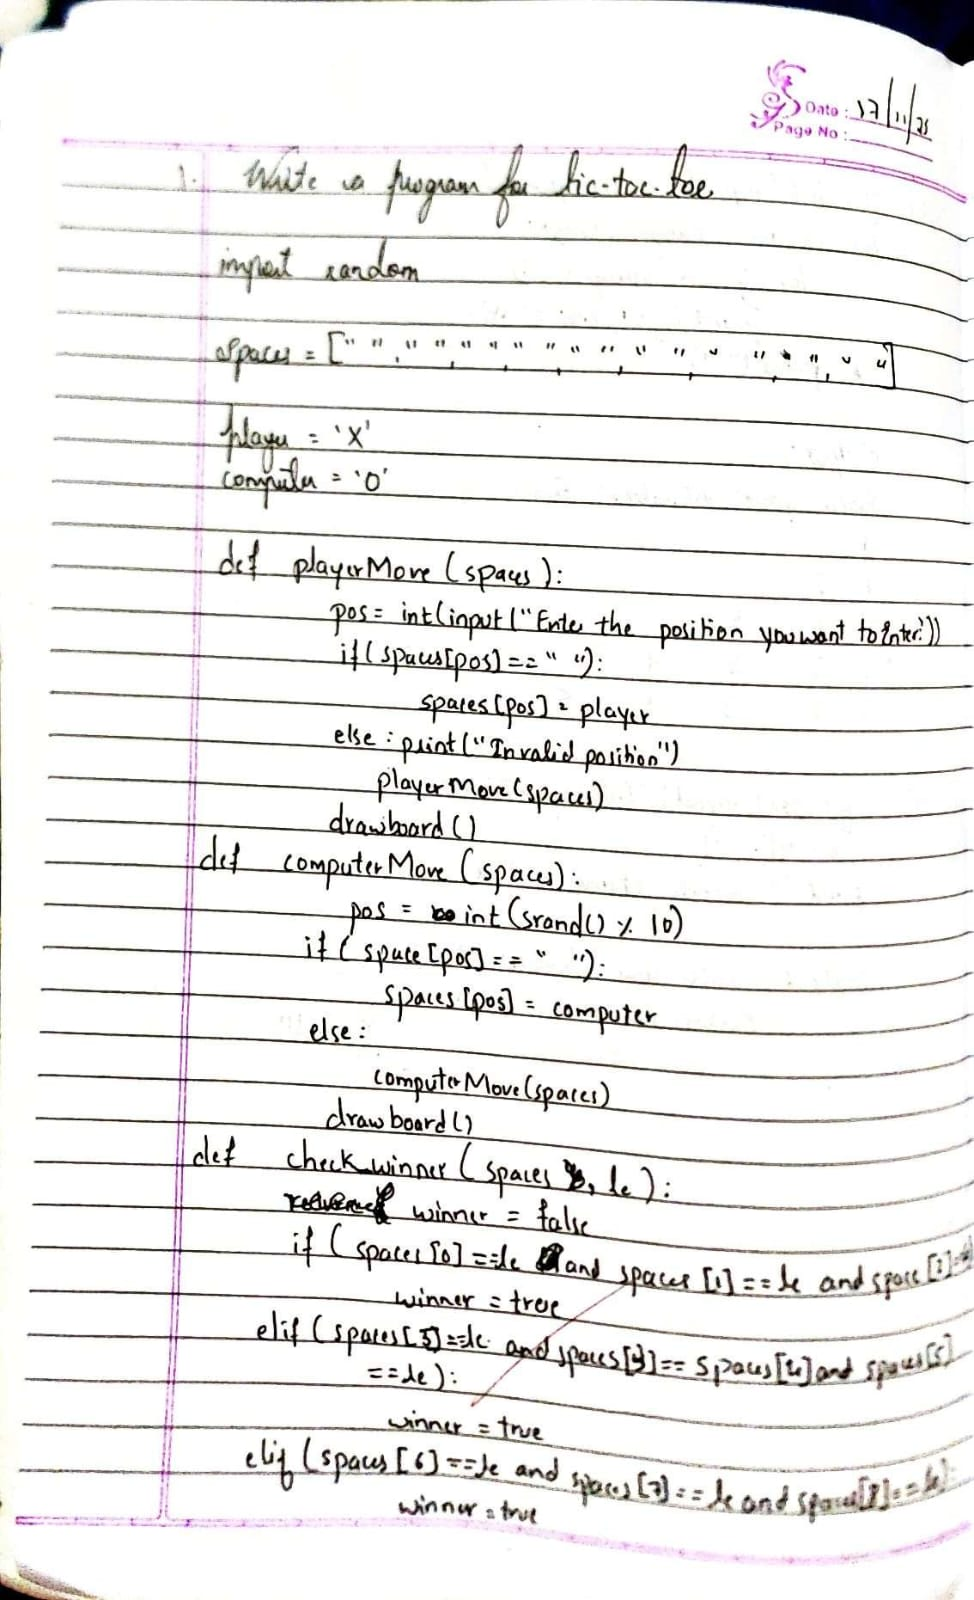 Date: 17/11/25
Page No:
1. Write a program for tic-tac-toe
import random
spaces = [" ", " ", " ", " ", " ", " ", " ", " ", " "]
player = 'X'
computer = 'O'
def playerMove (spaces):
pos = int(input("Enter the position you want to Enter:"))
if(spaces[pos]==" "):
spaces[pos] = player
else: print("Invalid position")
playerMove(spaces)
drawboard()
def computerMove (spaces):
pos = int(srand() % 10)
if (space[pos]==" "):
spaces[pos] = computer
else:
computerMove(spaces)
drawboard()
def check_winner (spaces, le):
winner = false
if (spaces[0]==le and spaces[1]==le and space[2]==
winner = true
elif (spaces[3]==le and spaces[4]== spaces[4] and spaces[5]
==le):
winner = true
elif (spaces[6]==le and spaces[7]==le and spaces[8]==le):
winner = true